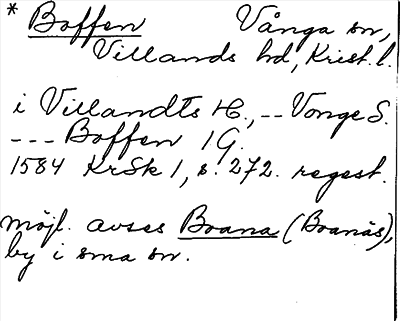 * Boffen Vånga sn,
Villands hd, Krist. l.
i Villandts H., -- Vonge S.
--- Boffen 1 G.
1584 KrSk 1, s. 272. regest.
möjl. avses Boana (Boanäs),
by i sma sn.